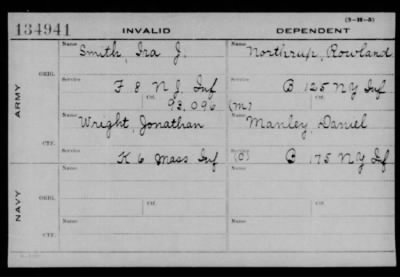 (3-18-5)
134941 INVALID DEPENDENT
Name Name
Smith, Ira J. Northrup, Rowland
ARMY
ORIG.
Service Service
F 8 N J Inf B 125 N Y Inf
Ctf. Ctf.
93,096 (m)
Name Name
Wright, Jonathan Manley, Daniel
CTF.
Service Service
K 6 Mass Inf (O) C 175 N Y Inf
NAVY
Name Name
ORIG.
Ctf. Ctf.
Name Name
CTF.